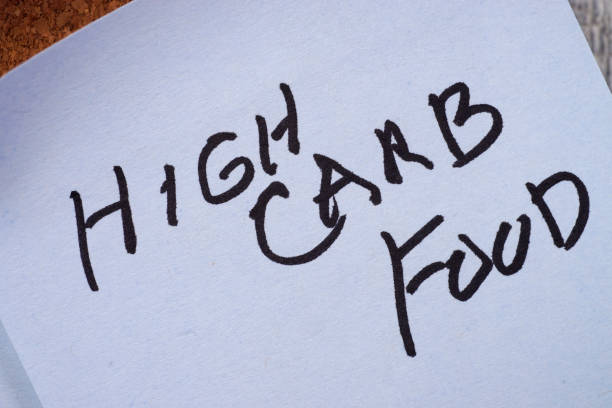 HIGH
CARB
FOOD